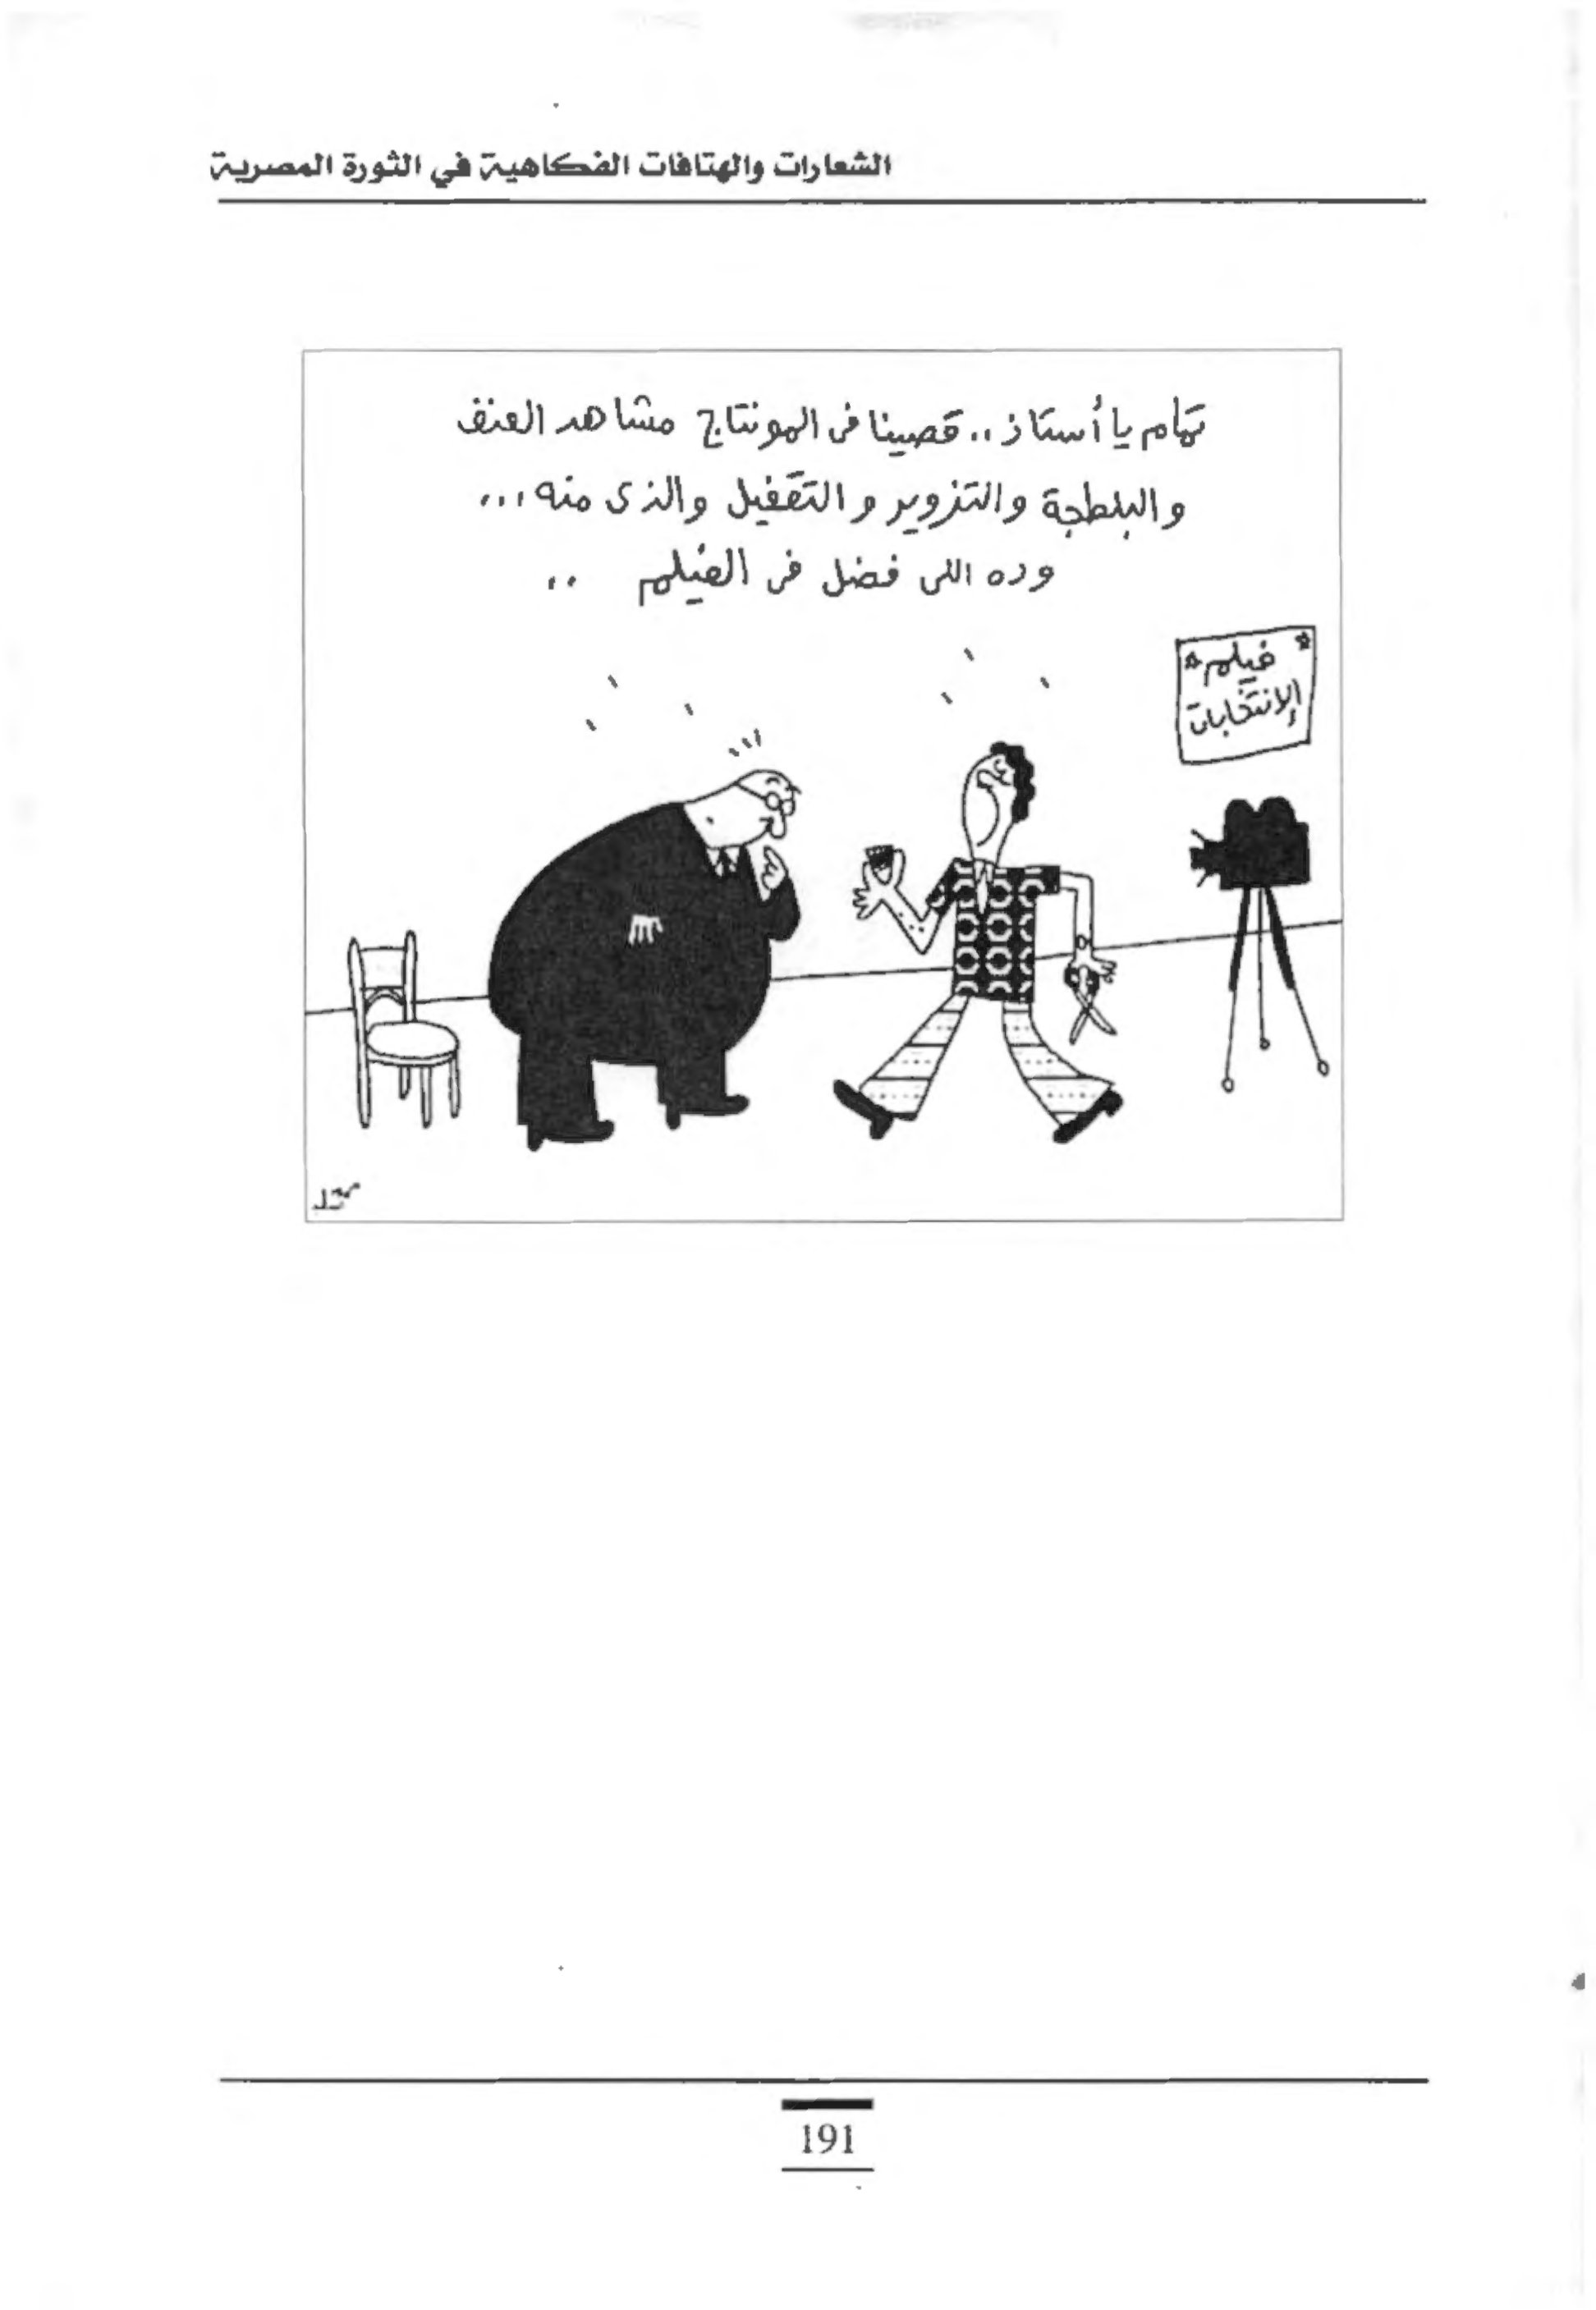 الشعارات والهتافات الفكاهية في الثورة المصرية
تمام يا أستاذ .. قصينا فى المونتاج مشاهد العنف
والبلطجة والتزوير والتقفيل والذى منه ...
وده اللى فضل فى الفيلم ..
فيلم
الإنتخابات
191